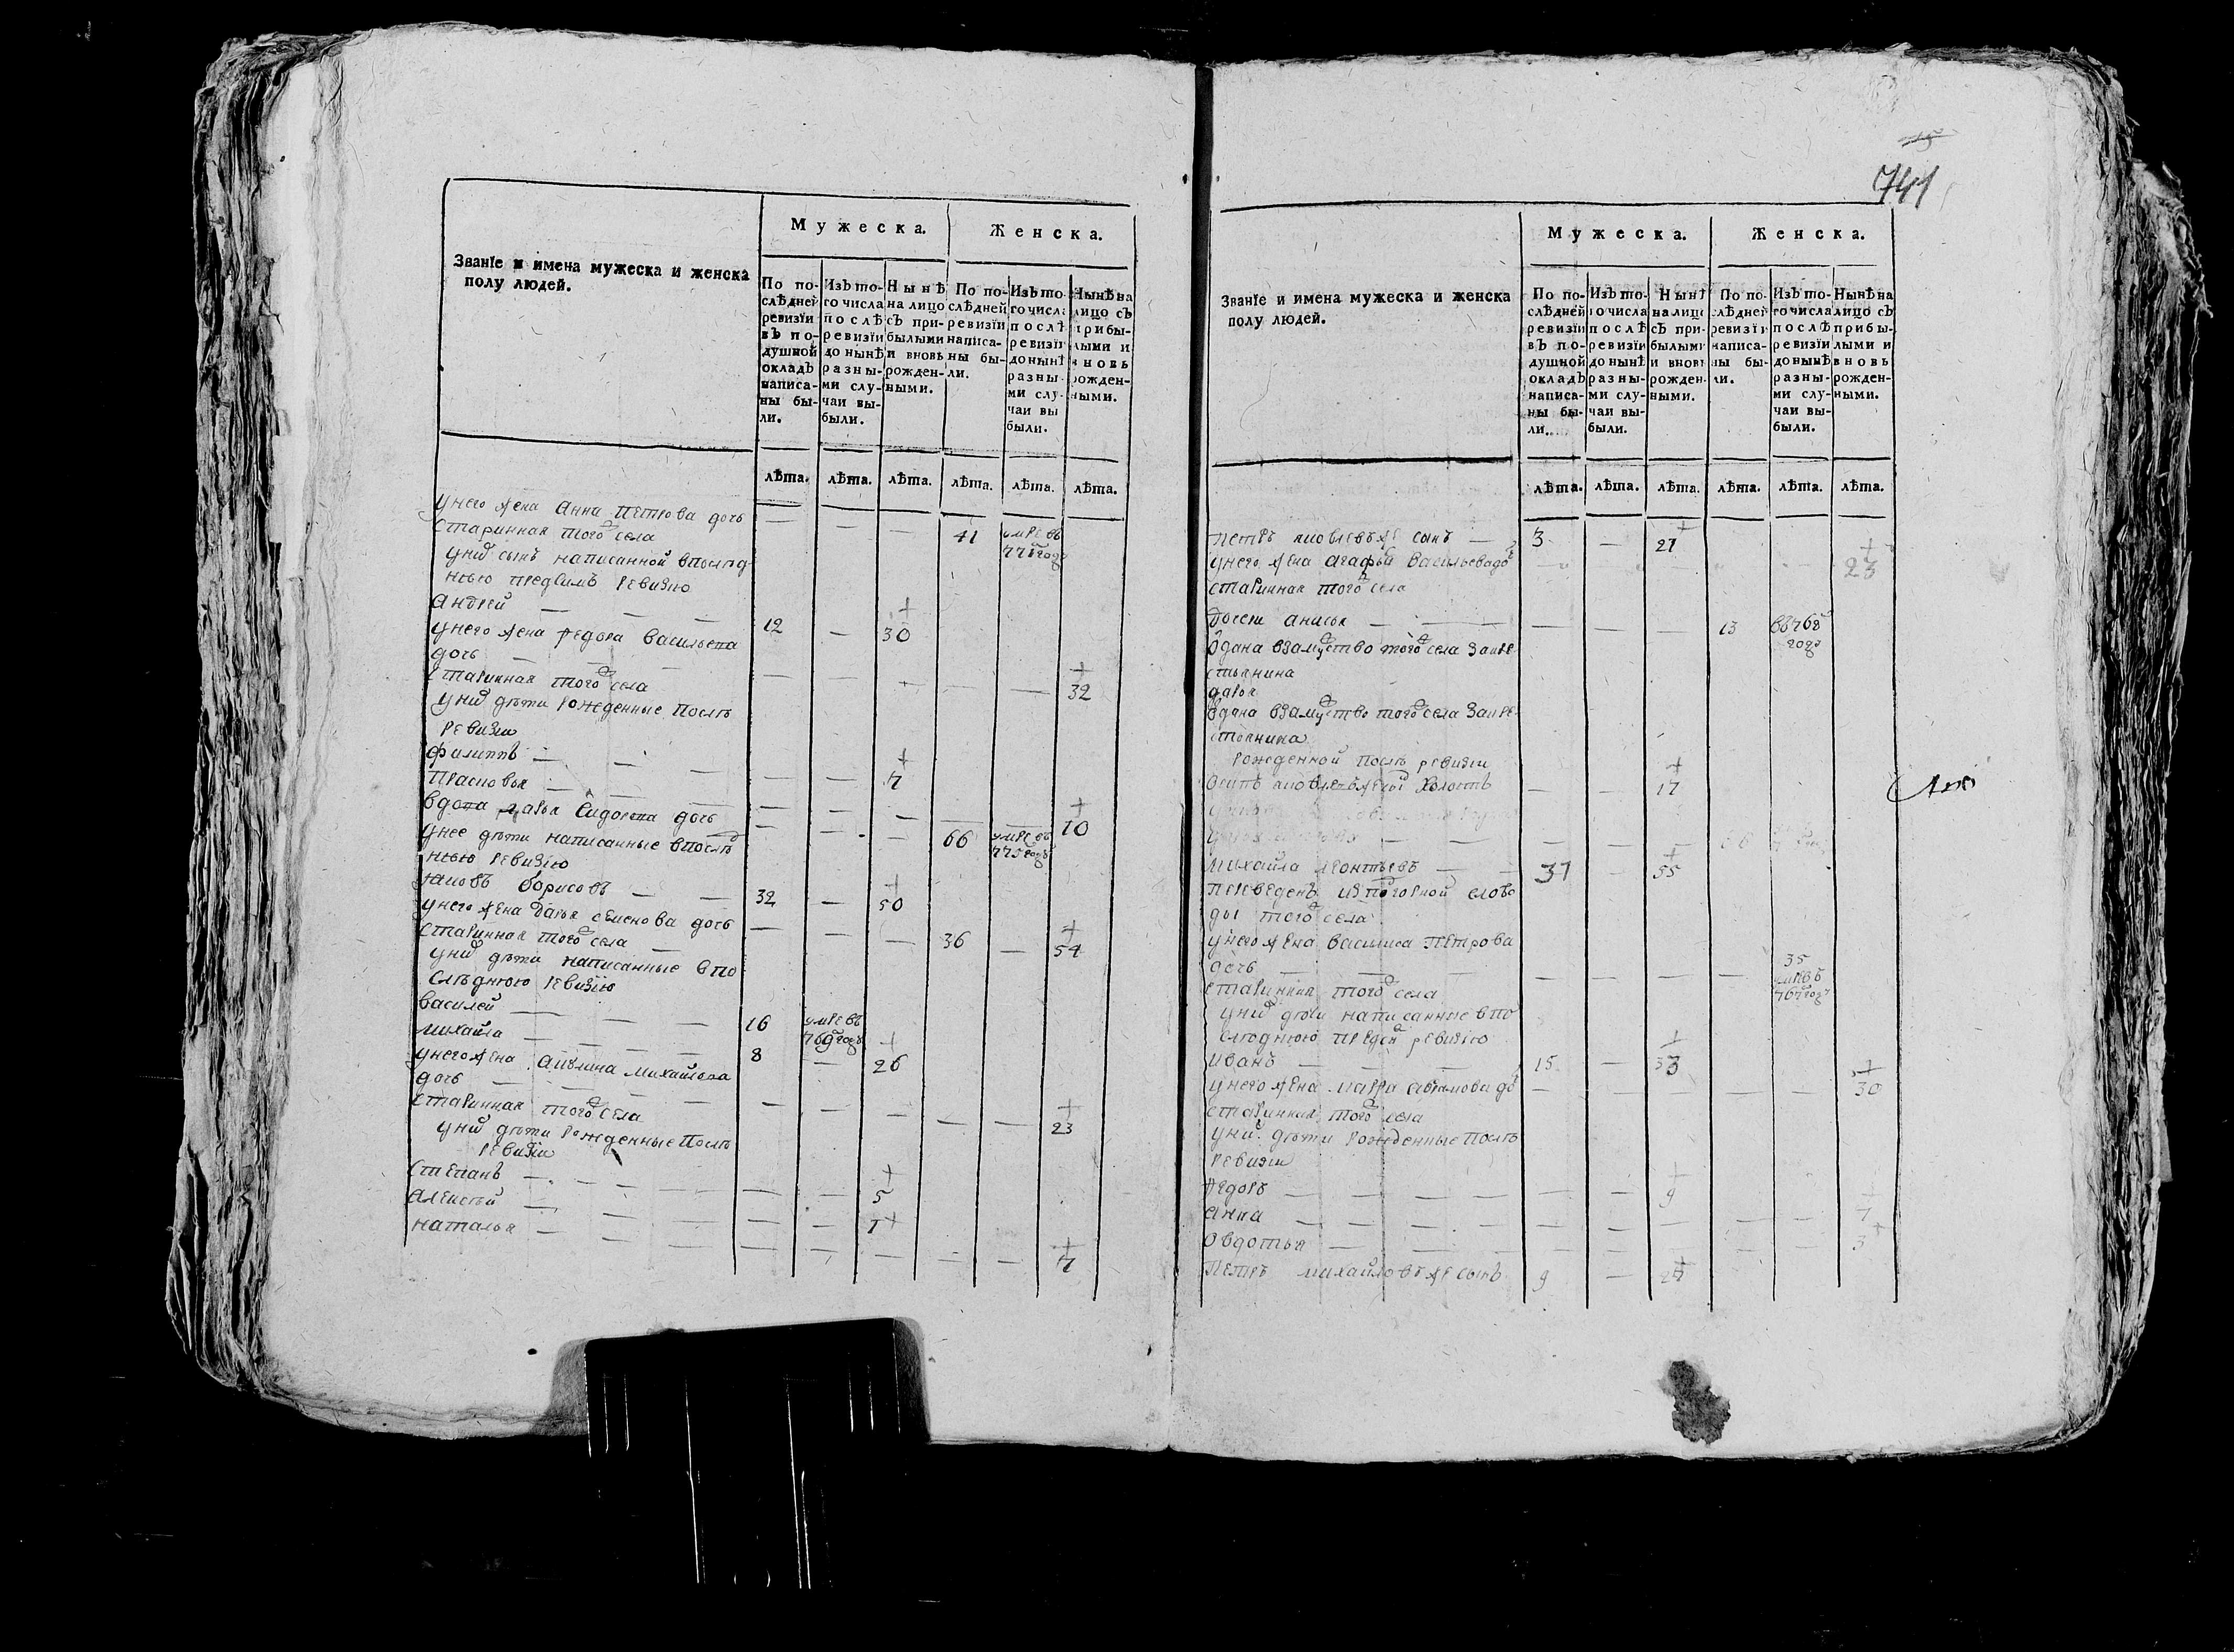 Мужеска. Женска.
Званїе и имена мужеска и женска
полу людей.
По по-
слѣдней
ревизїи
въ по-
душной
окладъ
написа-
ны бы-
ли.
Изъ то-
го числа
послѣ
ревизїи
до нынѣ
разны-
ми слу-
чаи вы-
были.
Нынѣ
на лицо
съ при-
былыми
и вновь
рожден-
ными.
По по-
слѣдней
ревизїи
написа-
ны бы-
ли.
Изъ то-
го числа
послѣ
ревизїи
до нынѣ
разны-
ми слу-
чаи вы
были.
Нынѣ на
лицо съ
прибы-
лыми и
вновь
рожден-
ными.
лѣта. лѣта. лѣта. лѣта. лѣта. лѣта.
унего жена анна петрова дочь
старинная того села 41 умре въ
771 году
уних сынъ написанной впослед
нюю предсимъ ревизию
андрей 12 30
унего жена федора васильева
дочь
старинная того села 32
уних дети рожденные после
ревизии
филиппъ 7
прасковья 10
вдова дарья сидорова дочь 66 умре въ
775 году
унее дети написанные впослед
нюю ревизию
яковъ борисовъ 32 50
унего жена дарья семенова дочь
старинная того села 36 54
уних дети написанные впо
следнюю ревизию
василей 16 умре въ
769 году
михайла 8 26
унего жена акулина михайлова
дочь
старинная того села 23
уних дети рожденные после
ревизии
степанъ 5
алексей 1
наталья 7
741
Мужеска. Женска.
Званїе и имена мужеска и женска
полу людей.
По по-
слѣдней
ревизїи
въ по-
душной
окладъ
написа-
ны бы-
ли.
Изъ то-
го числа
послѣ
ревизїи
до нынѣ
разны-
ми слу-
чаи вы-
были.
Нынѣ
на лицо
съ при-
былыми
и вновь
рожден-
ными.
По по-
слѣдней
ревизїи
написа-
ны бы-
ли.
Изъ то-
го числа
послѣ
ревизїи
до нынѣ
разны-
ми слу-
чаи вы-
были.
Нынѣ на
лицо съ
прибы-
лыми и
вновь
рожден-
ными.
лѣта. лѣта. лѣта. лѣта. лѣта. лѣта.
петръ яковлевъ же сынъ 3 21
унего жена агафья васильева до 23
старинная того села
дочери анисья 13 въ 768
году
одана взамуство того села закре
стьянина
дарья
одана взамуство того села закре
стьянина
рожденной после ревизии
осипъ яковлевъ же холостъ 17
михайла леонтьевъ 37 55
переведенъ из погорной слобо
ды того села
унего жена василиса петрова
дочь 35
умре въ
767 году
старинная того села
уних дети написанные впо
следнюю пред ревизию
иванъ 15 33
унего жена марфа абрамова до 30
старинная того села
уних дети рожденные после
ревизии
федоръ 9
анна 7
овдотья 3
петръ михайловъ же сынъ 9